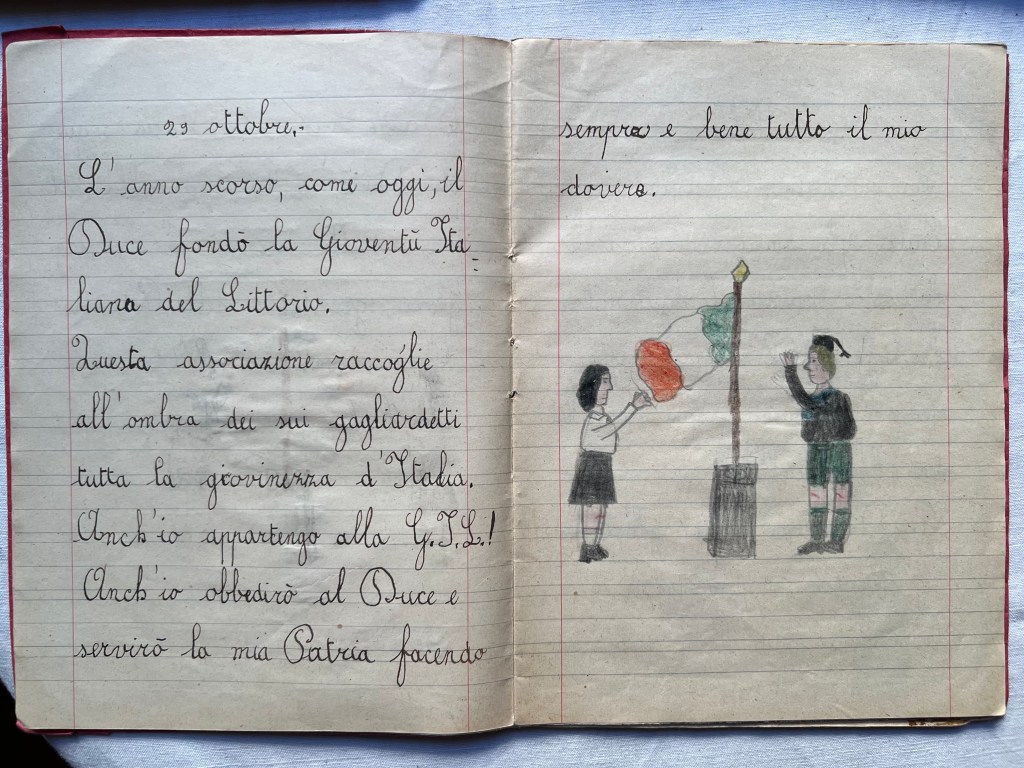 29 ottobre.-
L'anno scorso, come oggi, il
Duce fondò la Gioventù Ita=
liana del Littorio.
Questa associazione raccoglie
all'ombra dei sui gagliardetti
tutta la giovinezza d'Italia.
Anch'io appartengo alla G.I.L.!
Anch'io obbedirò al Duce e
servirò la mia Patria facendo
sempre e bene tutto il mio
dovere.